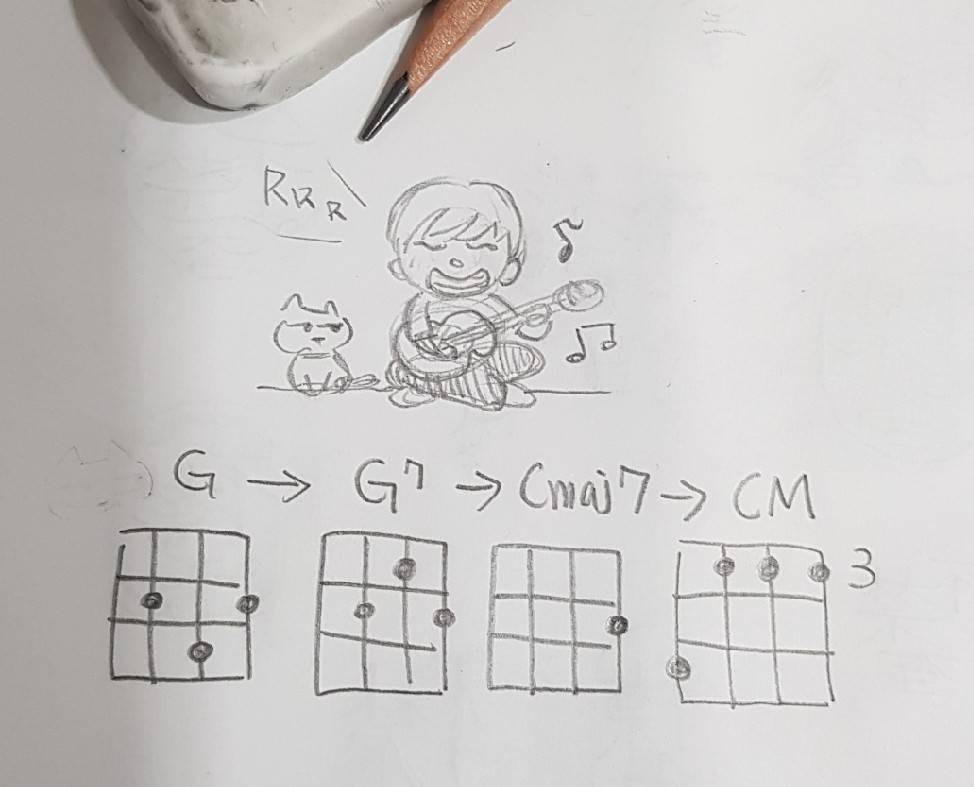 RRR
G → G7 → Cmaj7 → CM
3